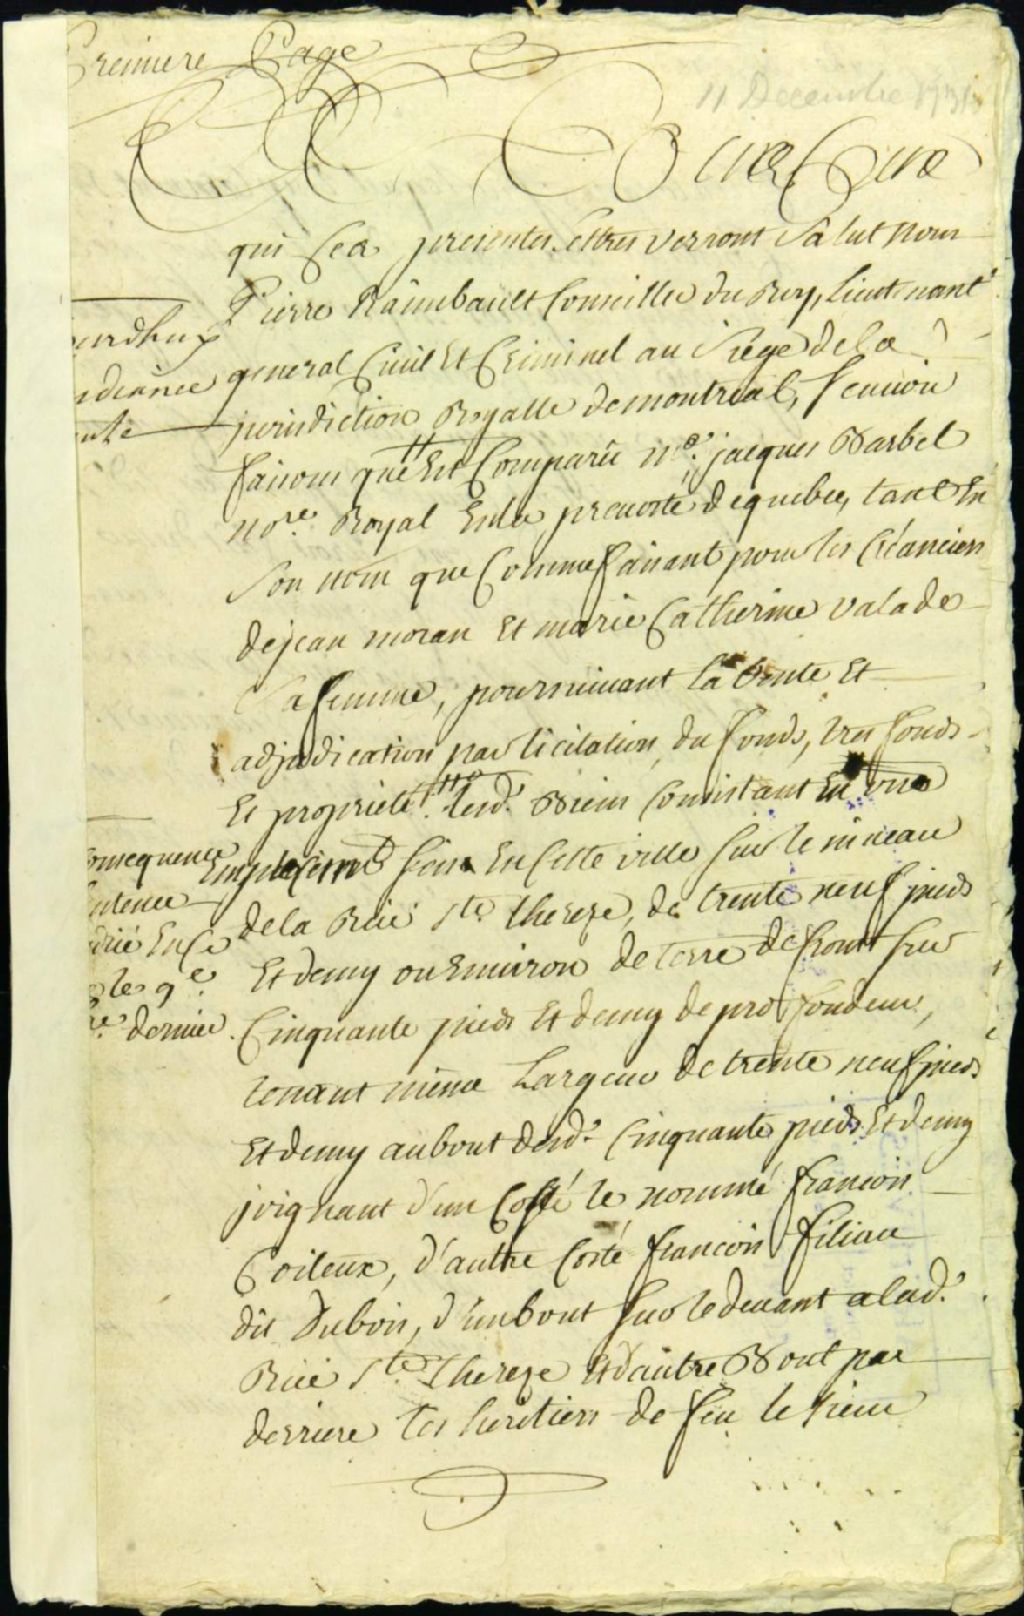 Premiere Page
11 Decembre
A tous Ceux
qui ses presentes lettres verront Salut nous
Pierre Raimbault Conseiller du Roy, Lieutenant
general Civil Et Criminel au Siege dela
jurisdiction Royalle demontreal, scavoir
faisons que Est Comparû me. jacques Barbel
nore. Royal Enla prevosté dequebec, tant En
Son nom que Comme faisant pour les Créanciers
dejean moran Et marie Catherine valade
Sa femme, poursuivant la vente Et
adjudication par licitation, du fonds, tres fonds
Et proprieté desd. Biens Consistant En une
Emplacement sciza En Cette ville sur le niveau
dela Rüe Ste. thereze, de trente neuf pieds
Et demy ou Environ de terre de front sur
Cinquante pieds Et demy de profondeur,
tenant même Largeur de trente neuf pieds
Et demy aubout desd. Cinquante pieds Et demy
joignant d'un Costé le nommé francois
Coiteux, d'autre Costé francois filiau
dit Dubois, d'un bout sur le devant a lad.
Rüe Ste. Thereze Et d'autre Bout par
derriere les heritiers de feu le sieur
ourdhuy
udience
nte
onsequence
entence
Ence
le 9e
re. dernier